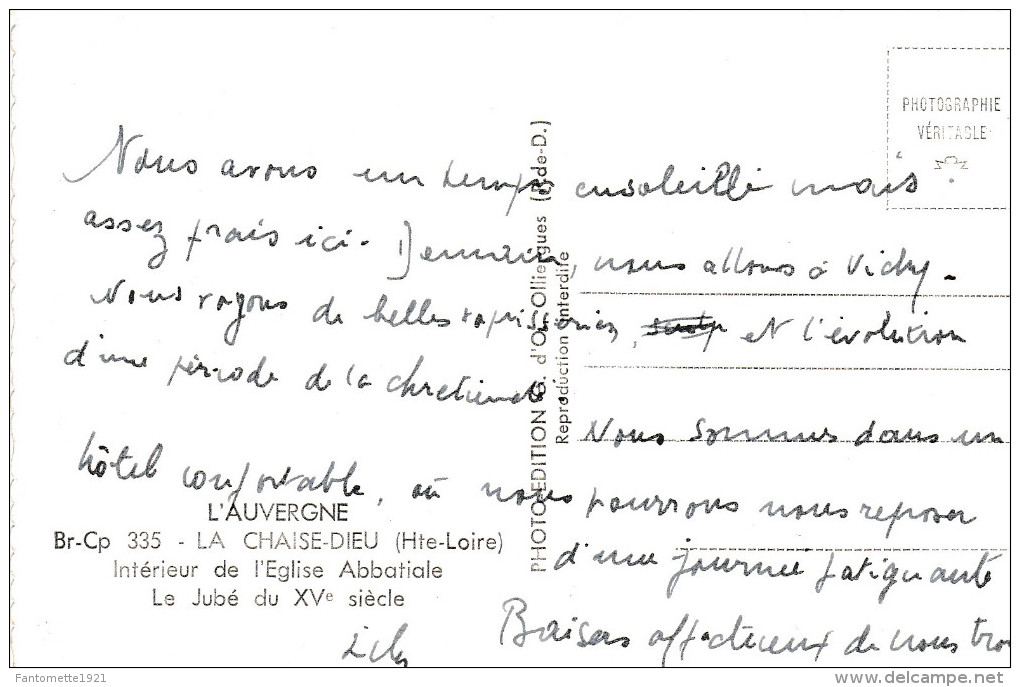 PHOTOGRAPHIE
VÉRITABLE
Nous avons un temps ensoleillé mais
assez frais ici. Demain, nous allons à Vichy.
Nous voyons de belles tapisseries, et l'évolution
d'une période de la chretienté.
Nous sommes dans un
hôtel confortable, où nous pourrons nous reposer
d'une journée fatiguante
Baisers affectueux de nous trois
L'AUVERGNE
Br-Cp 335 - LA CHAISE-DIEU (Hte-Loire)
Intérieur de l'Eglise Abbatiale
Le Jubé du XVe siècle
PHOTO-EDITION G. d'O. Olliergues (P.-de-D.)
Reproduction interdite
Fantomette1921
delcampe.net